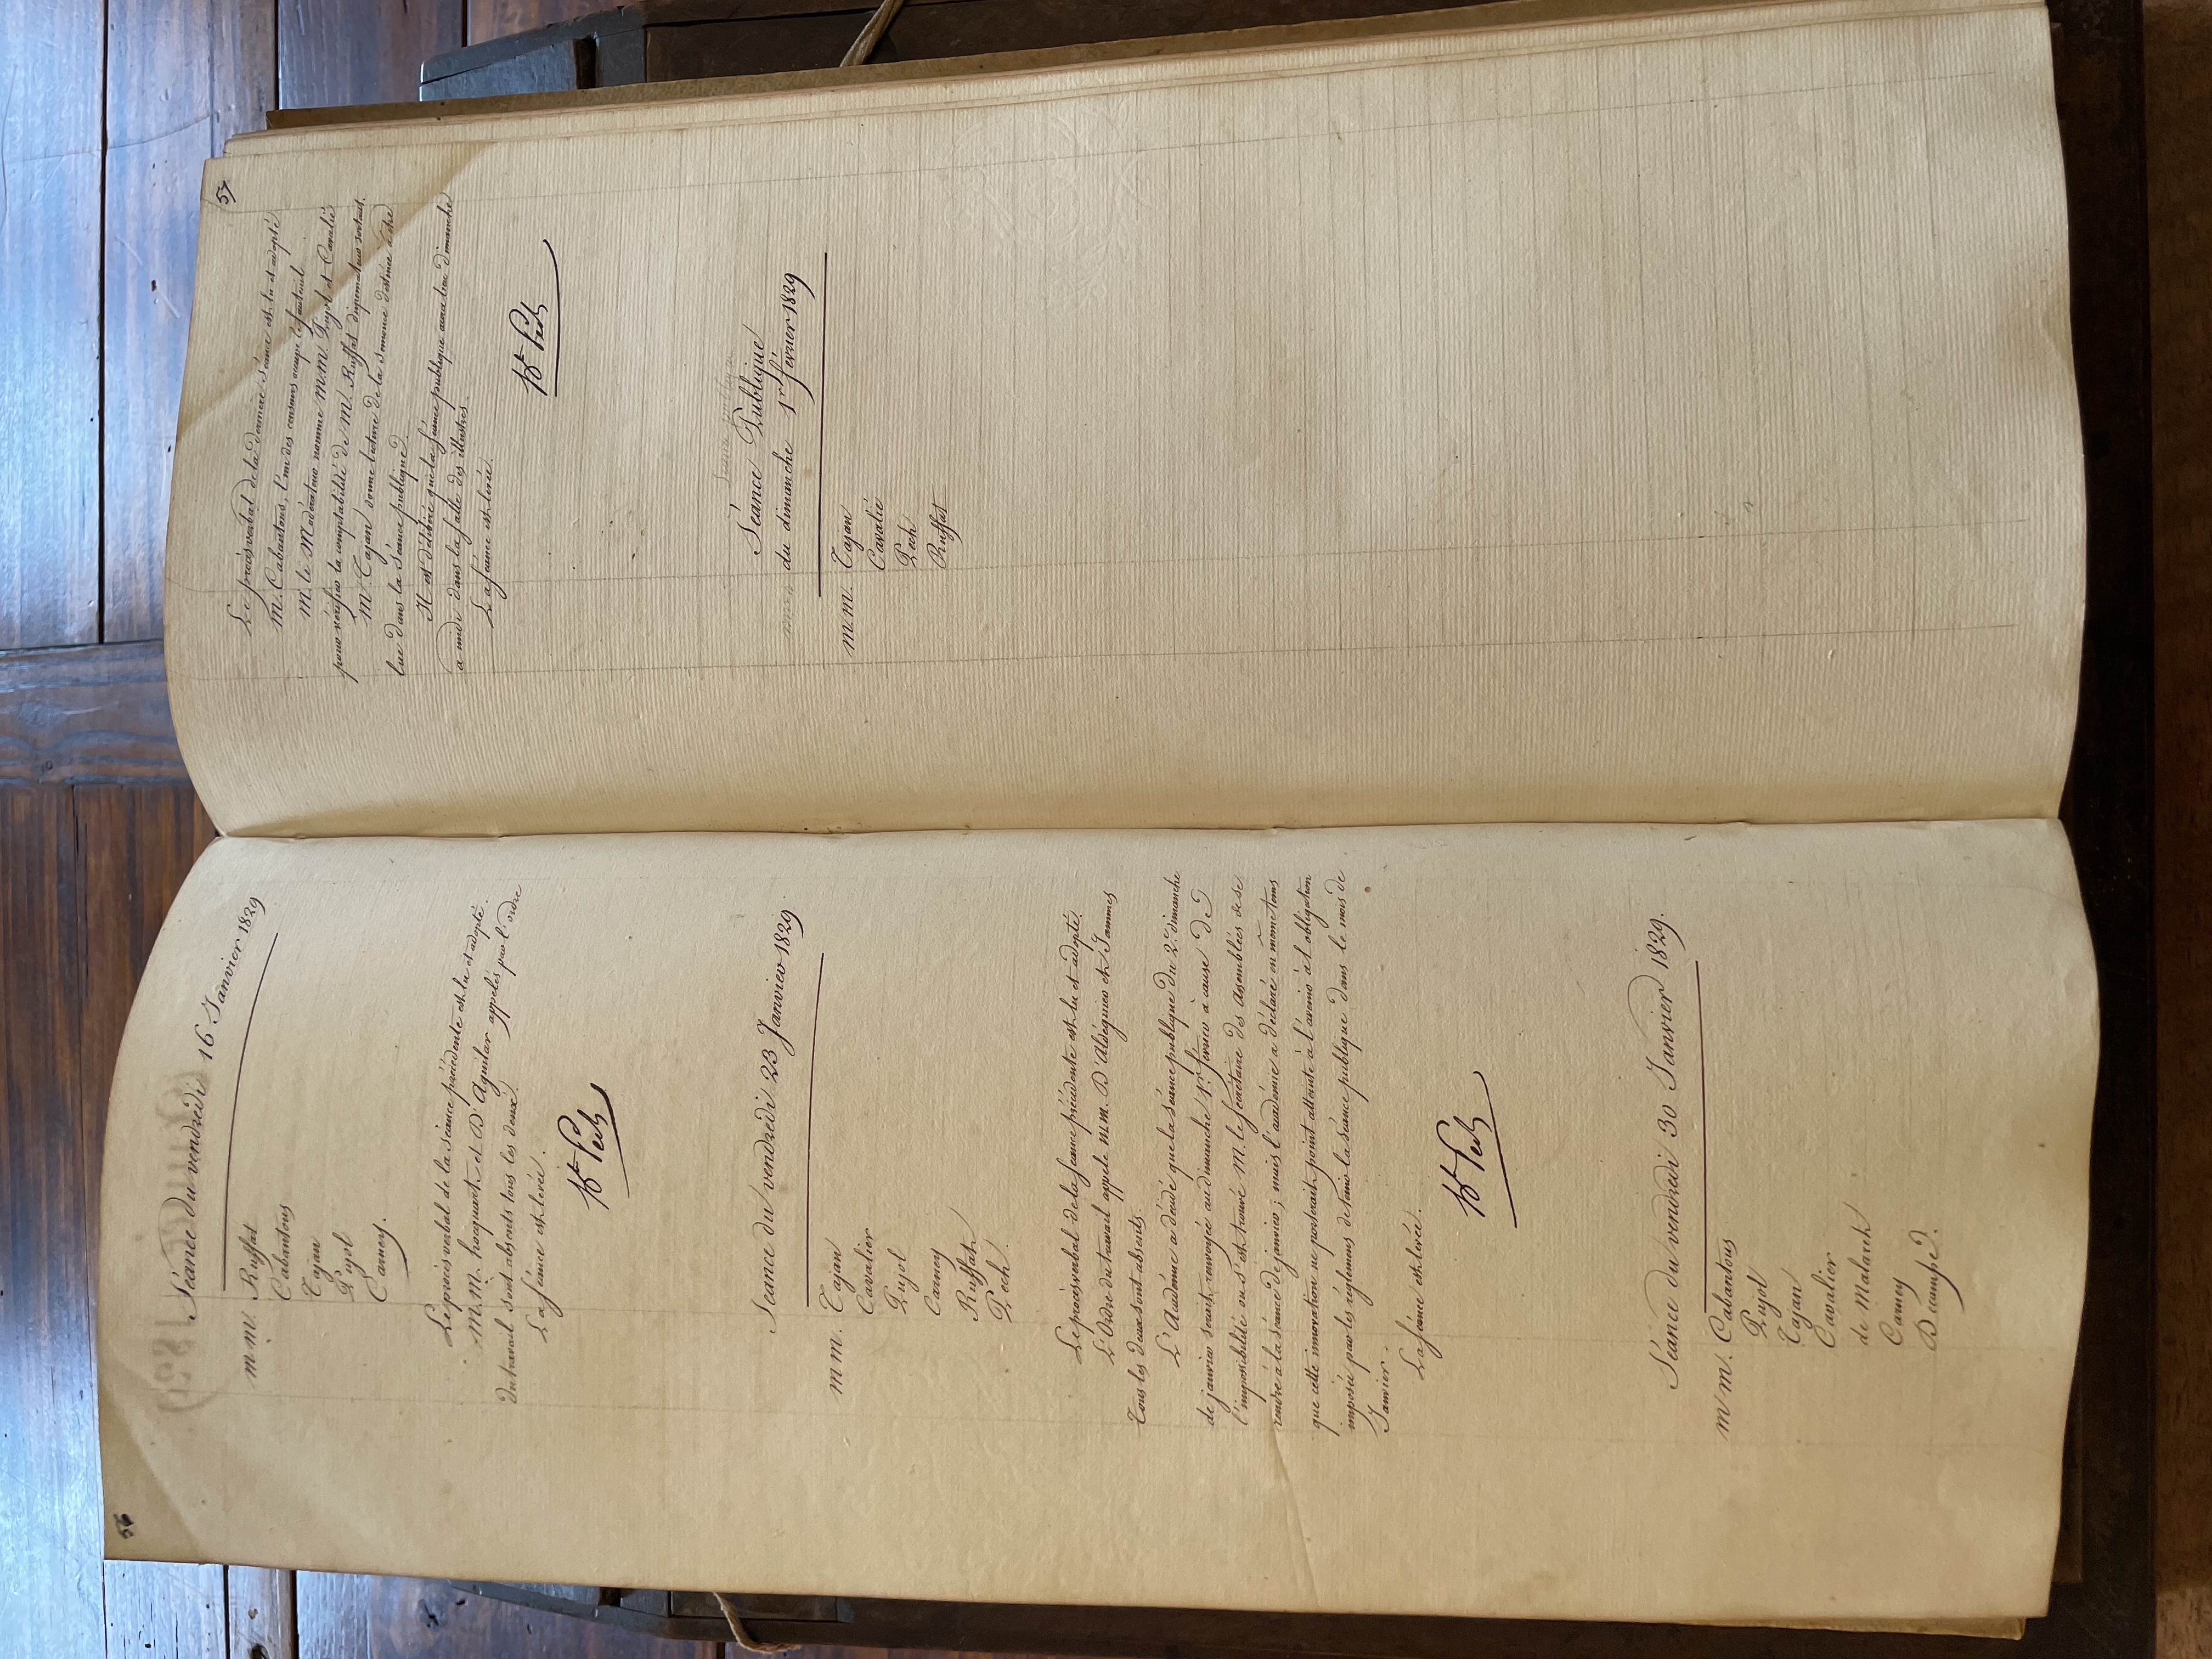 56
Séance du vendredi 16 Janvier 1829
m.m. Ruffat
Cabantous
Cajan
Pujol
Carney.
Le procès verbal de la séance précédente est lu et adopté.
M.M. hocquart et D'Aguilar appelés par l'ordre
du travail sont absents tous les deux.
La séance est levée.
Bt Pech
Séance du vendredi 23 Janvier 1829
m.m. Cajan
Cavalier
Pujol
Carney
Ruffat
Pech.
Le procès verbal de la séance précédente est lu et adopté.
L'Ordre du travail appele M.M. D'Aldéguier et Jammes
tous les deux sont absents.
L'Académie a décidé que la séance publique du 2e dimanche
de janvier serait renvoyée au dimanche 1er février à cause de
l'impossibilité où s'est trouvé M. le secrétaire des assemblées de se
rendre à la séance de janvier; mais l'académie a déclaré en même tems
que cette innovation ne porterait point atteinte à l'avenir à l'obligation
imposée par les réglemens de tenir la séance publique dans le mois de
Janvier.
La séance est levée.
Bt Pech
Séance du vendredi 30 Janvier 1829.
m.m. Cabantous
Pujol
Cajan
Cavalier
de Malaret
Carney
Decampe.
57
Le procès verbal de la dernière séance est lu et adopté
M. Cabantous, l'un des censeurs occupe le fauteuil
M. le Modérateur nomme M.M. Pujol et Cavalié
pour vérifier la comptabilité de M. Ruffat dispensateur sortant.
M. Cajan donne lecture de la semonce destinée à être
lue dans la séance publique.
Il est délibéré que la séance publique aura lieu dimanche
a midi dans la salle des illustres.
La séance est levée.
Bt Pech
Séance publique
Séance Publique
du dimanche 1er février 1829
m.m. Cajan
Cavalié
Pech
Ruffat